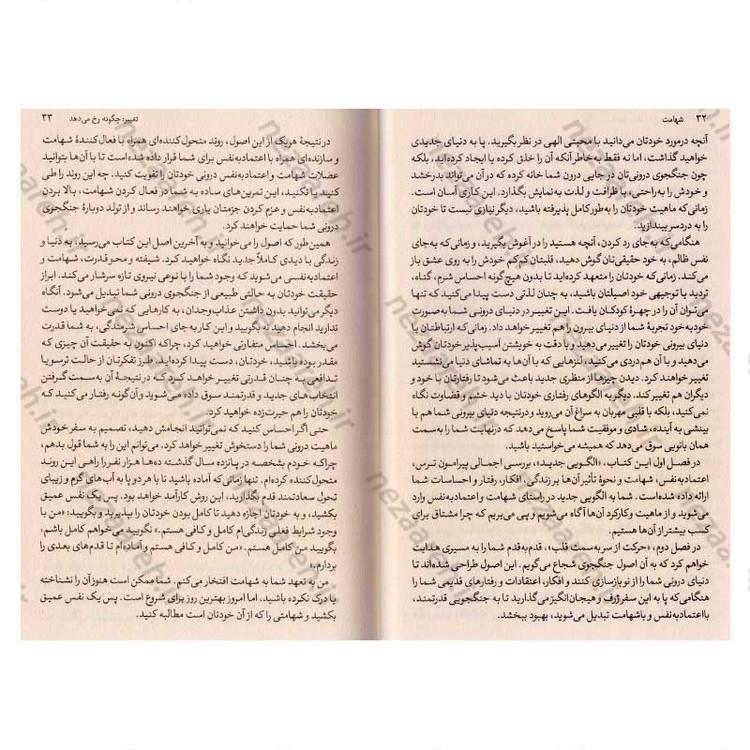 ۳۲ شهامت
آنچه درمورد خودتان می‌دانید با محبتی الهی در نظر بگیرید. پا به دنیای جدیدی
خواهید گذاشت، اما نه فقط به خاطر آنکه آن را خلق کرده یا ایجاد کرده‌اید، بلکه
چون جنگجوی درونی‌تان در جایی درون شما خانه کرده که در آن می‌تواند بدرخشد
و خودش را به‌راحتی، با ظرافت و لذت به نمایش بگذارد. این کاری آسان است.
زمانی‌که ماهیت خودتان را به‌طور کامل پذیرفته باشید، دیگر نیازی نیست تا خودتان
را به دردسر بیندازید.
هنگامی‌که به‌جای رد کردن، آنچه هستید را در آغوش بگیرید، و زمانی که به‌جای
نفس ظالم، به خود حقیقی‌تان گوش دهید، قلبتان کم‌کم خودش را به روی عشق باز
می‌کند. زمانی‌که خودتان را متعهد کرده‌اید تا بدون هیچ‌گونه احساس شرم، گناه،
تردید یا توجیهی خود اصیلتان باشید، به چنان لذتی دست پیدا می‌کنید که تنها
می‌توان آن را در چهرهٔ کودکان یافت. این تغییر در دنیای درونی شما به‌صورت
خودبه‌خود تجربهٔ شما از دنیای بیرون را هم تغییر خواهد داد. زمانی که ارتباطتان با
دنیای بیرونی را تغییر می‌دهید و با دقت به خویشتن آسیب‌پذیر خودتان گوش
می‌دهید و با آن هم‌دردی می‌کنید، لنزهایی که با آن‌ها به تماشای دنیا می‌نشستید
تغییر خواهند کرد. دیدن چیزها از منظری جدید باعث می‌شود تا رفتارتان با خود و
دیگران هم تغییر کند. دیگر به الگوهای رفتاری گذشته با دید خشم و قضاوت نگاه
نمی‌کنید، بلکه با قلبی مهربان به سراغ آن می‌روید و درنتیجه دنیای بیرونی شما هم با
بینشی به آینده، شادی و موفقیت به شما پاسخ می‌دهد که درنهایت شما را به سمت
همان بانویی سوق می‌دهد که همیشه می‌خواستید باشید.
در فصل اول این کتاب، «الگویی جدید»، بررسی اجمالی پیرامون ترس،
اعتمادبه‌نفس، شهامت و نحوهٔ تأثیر آن‌ها بر زندگی، افکار، رفتار و احساسات شما
ارائه داده شده است. شما با الگویی جدید در راستای شهامت و اعتمادبه‌نفس وارد
می‌شوید و از ماهیت و کارکرد آن‌ها آگاه می‌شویم و پی می‌بریم که چرا مشتاق برای
کسب بیشتر از آن‌ها هستیم.
در فصل دوم، «حرکت از سر به سمت قلب»، قدم‌به‌قدم شما را به مسیری هدایت
خواهم کرد که به آن اصول جنگجوی شجاع می‌گویم. این اصول طراحی شده‌اند تا
دنیای درونی شما را از نو بازسازی کنند و افکار، اعتقادات و رفتارهای قدیمی شما را
هنگامی‌که پا به این سفر ژرف و هیجان‌انگیز می‌گذارید تا به جنگجویی قدرتمند،
بااعتمادبه‌نفس و باشهامت تبدیل می‌شوید، بهبود ببخشد.
تغییر، چگونه رخ می‌دهد ۳۳
در نتیجهٔ هر یک از این اصول، روند متحول‌کننده‌ای همراه با فعال‌کنندهٔ شهامت
و سازنده‌ای همراه با اعتمادبه‌نفس برای شما قرار داده شده است تا با آن‌ها بتوانید
عضلات شهامت و اعتمادبه‌نفس درونی خودتان را تقویت کنید. چه این روند را طی
کنید یا نکنید، این تمرین‌های ساده به شما در فعال کردن شهامت، بالا بردن
اعتمادبه‌نفس و عزم کردن جزمتان یاری خواهند رساند و از تولد دوبارهٔ جنگجوی
درونی شما حمایت خواهند کرد.
همین‌طور که اصول را می‌خوانید و به آخرین اصل این کتاب می‌رسید، به دنیا و
زندگی با دیدی کاملاً جدید نگاه خواهید کرد. شیفته و محو قدرت، شهامت و
اعتمادبه‌نفسی می‌شوید که وجود شما را با نوعی نیروی تازه سرشار می‌کند. ابراز
حقیقت خودتان به حالتی طبیعی از جنگجوی درونی شما تبدیل می‌شود. آنگاه
دیگر می‌توانید بدون داشتن عذاب‌وجدان، به کارهایی که نمی‌خواهید یا دوست
ندارید انجام دهید نه بگویید و این کار به جای احساس شرمندگی، به شما قدرت
می‌بخشد. احساس متفاوتی خواهید کرد، چراکه اکنون به حقیقت آن چیزی که
مقدر بوده باشید، خودتان، دست پیدا کرده‌اید. طرز تفکرتان از حالت ترسو یا
تدافعی به چنان قدرتی تغییر خواهد کرد که در نتیجهٔ آن به‌سمت گرفتن
انتخاب‌های جدید و قدرتمند سوق داده می‌شوید و آن‌گونه رفتار می‌کنید که
خودتان را هم حیرت‌زده خواهید کرد.
حتی اگر احساس کنید که نمی‌توانید انجامش دهید، تصمیم به سفر خودش
ماهیت درونی شما را دستخوش تغییر خواهد کرد. می‌توانم این را به شما قول بدهم،
چراکه خودم بشخصه در پانزده سال گذشته ده‌ها هزار نفر را راهی این روند
متحول‌کننده کرده‌ام. تنها زمانی که آماده باشید تا با هر دو پا به آب‌های گرم و زیبای
تحول سعادتمند قدم بگذارید، این روش کارآمد خواهد بود. پس یک نفس عمیق
بکشید، و به خودتان اجازه دهید تا کامل بودن خودتان را بپذیرید و بگویید: «من با
وجود شرایط فعلی زندگی‌ام کامل و کافی هستم.» نگویید می‌خواهم کامل باشم،
بگویید من کامل و کافی هستم. «من کامل و کافی هستم و آماده‌ام تا قدم‌های بعدی را
بردارم.»
من به تعهد شما به شهامت افتخار می‌کنم. شما ممکن است هنوز آن را نشناخته
یا درک نکرده باشید، اما امروز بهترین روز برای شروع است. پس یک نفس عمیق
بکشید و شهامتی را که از آن خودتان است مطالبه کنید.
nezaareh.ir